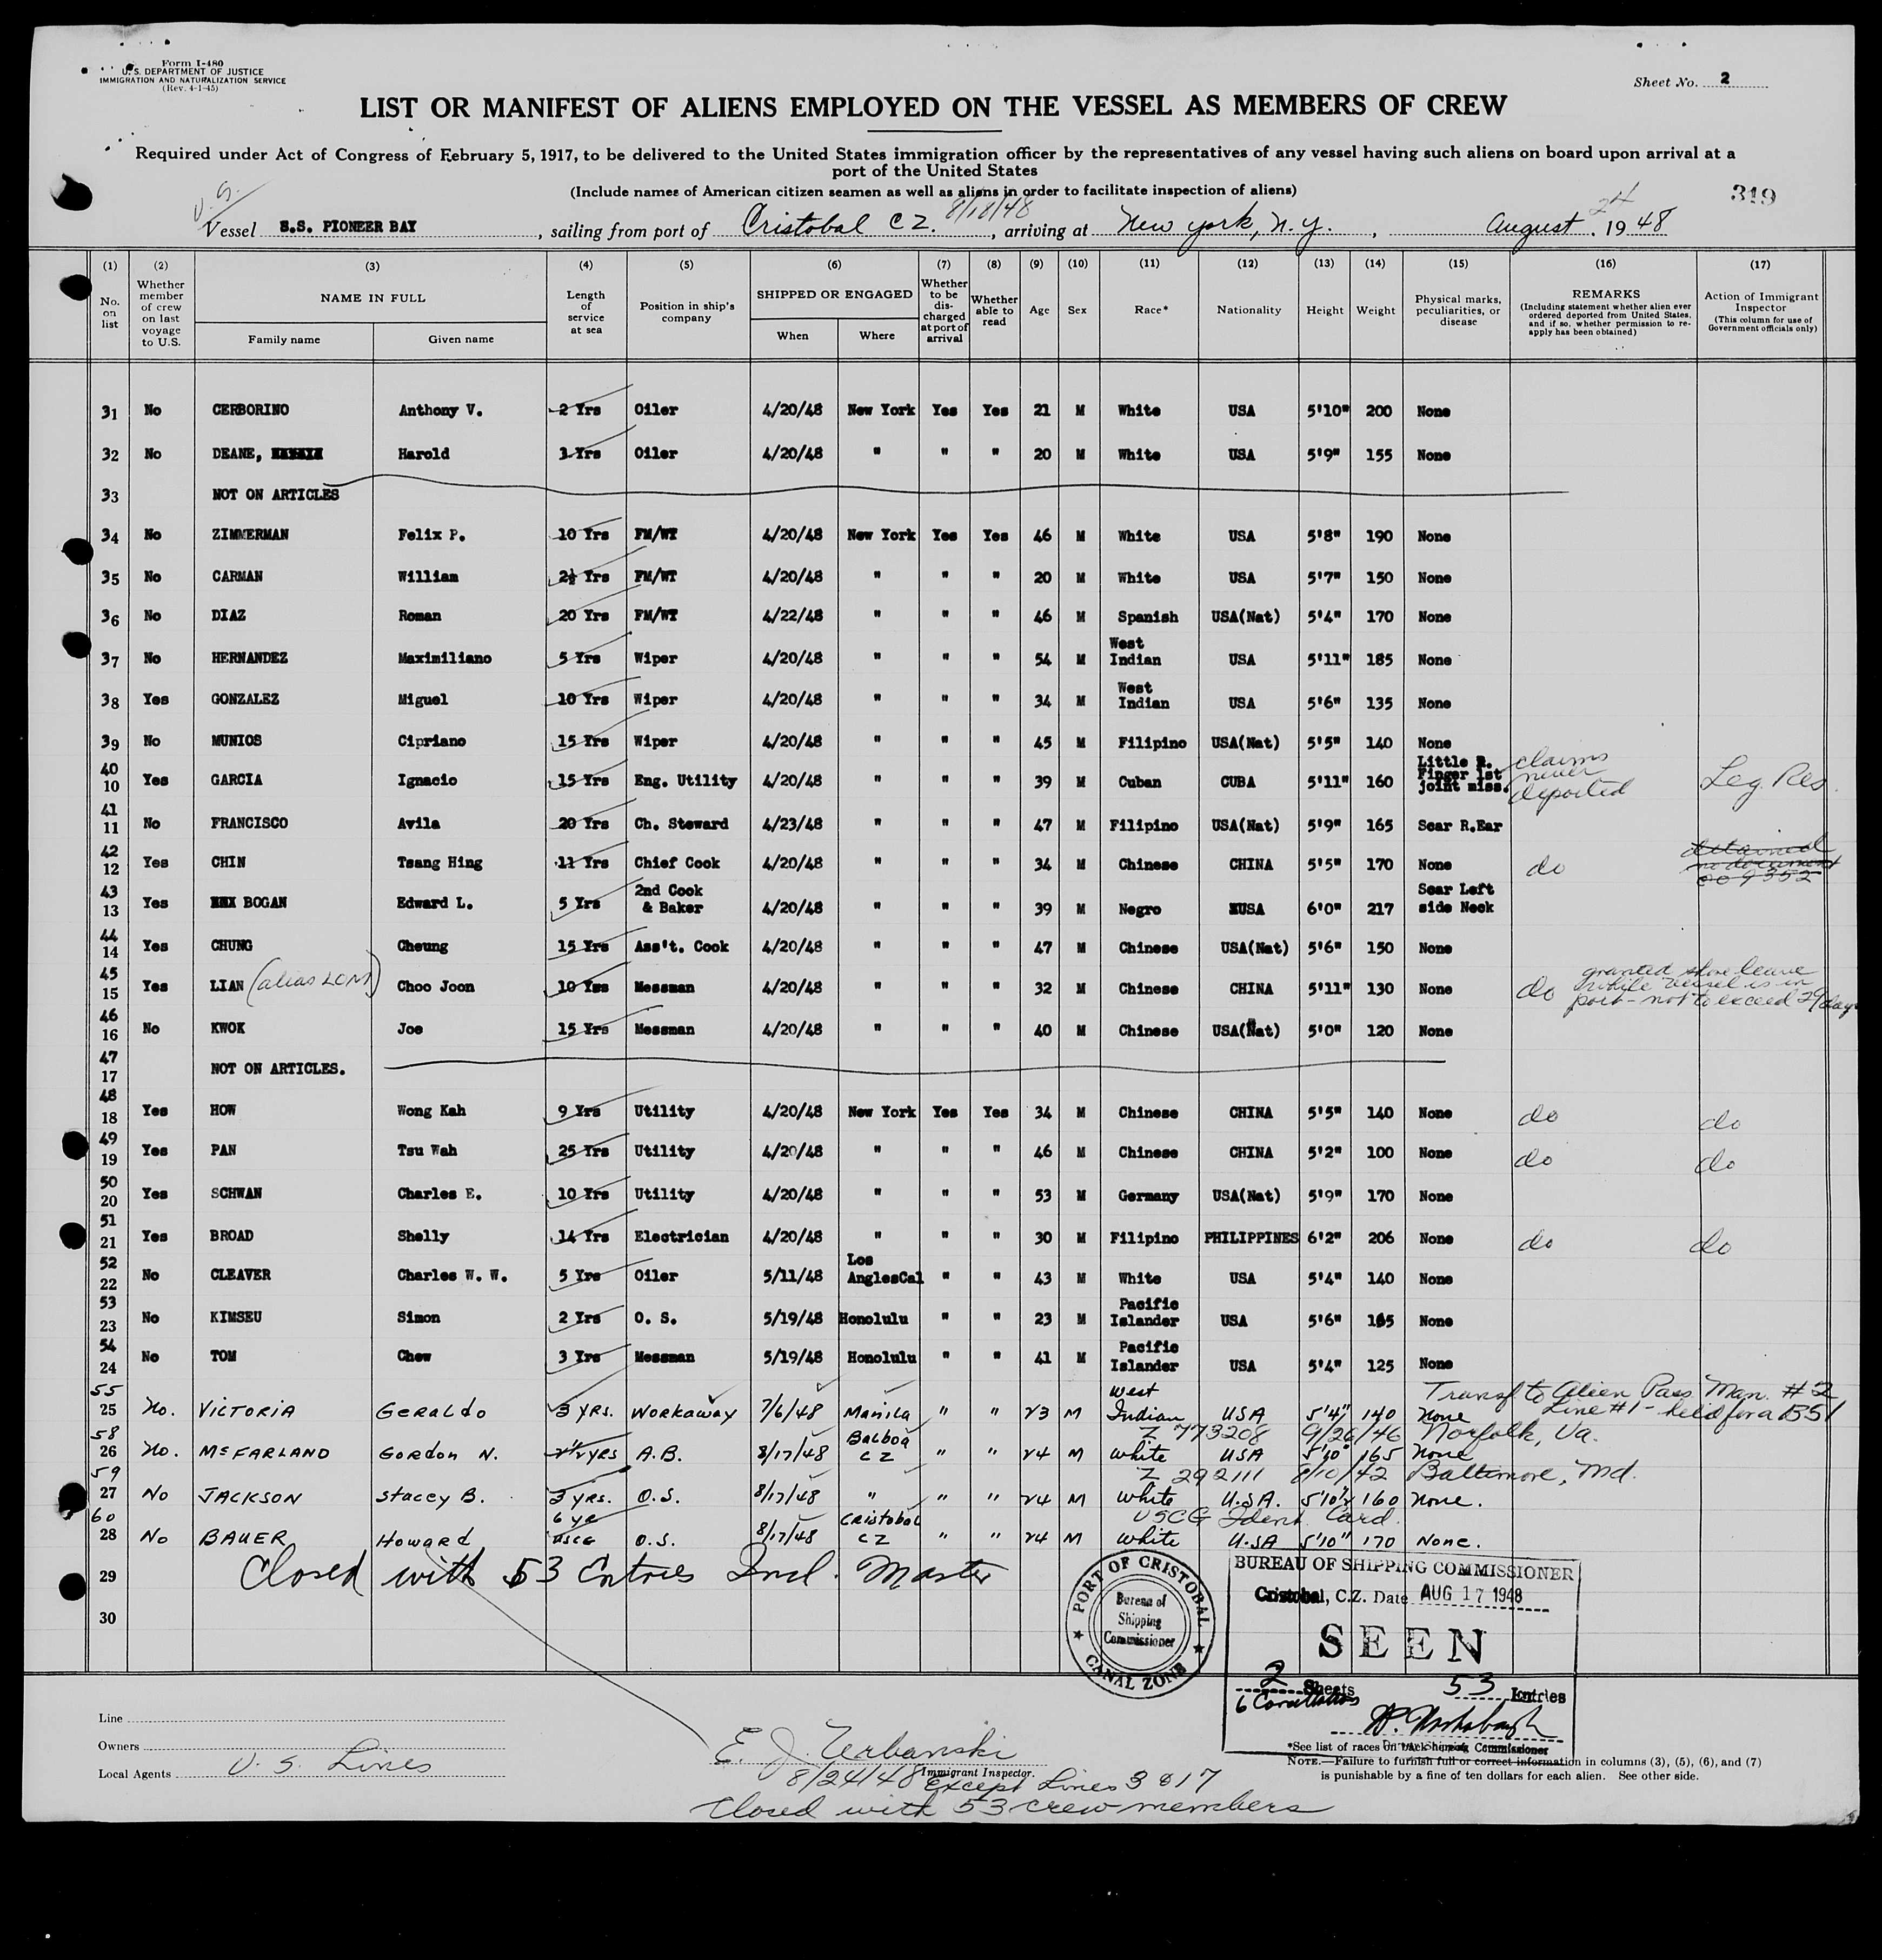 Form I-480
U.S. DEPARTMENT OF JUSTICE
IMMIGRATION AND NATURALIZATION SERVICE
(Rev. 4-1-45)
Sheet No. 2
LIST OR MANIFEST OF ALIENS EMPLOYED ON THE VESSEL AS MEMBERS OF CREW
Required under Act of Congress of February 5, 1917, to be delivered to the United States immigration officer by the representatives of any vessel having such aliens on board upon arrival at a
port of the United States
(Include names of American citizen seamen as well as aliens in order to facilitate inspection of aliens)
319
U.S. 8/18/48 24
Vessel S.S. PIONEER BAY, sailing from port of Cristobal CZ., arriving at New York, N.Y., August, 1948
(1) (2) (3) (4) (5) (6) (7) (8) (9) (10) (11) (12) (13) (14) (15) (16) (17)
No. on list Whether member of crew on last voyage to U.S. NAME IN FULL Family name Given name Length of service at sea Position in ship's company SHIPPED OR ENGAGED When Where Whether to be discharged at port of arrival Whether able to read Age Sex Race* Nationality Height Weight Physical marks, peculiarities, or disease REMARKS (Including statement whether alien ever ordered deported from United States, and if so, whether permission to reapply has been obtained) Action of Immigrant Inspector (This column for use of Government officials only)
31 No CERBORINO Anthony V. 2 Yrs Oiler 4/20/48 New York Yes Yes 21 M White USA 5'10" 200 None
32 No DEANE, Harold 3 Yrs Oiler 4/20/48 " " " 20 M White USA 5'9" 155 None
33 NOT ON ARTICLES
34 No ZIMMERMAN Felix P. 10 Yrs FM/WT 4/20/48 New York Yes Yes 46 M White USA 5'8" 190 None
35 No CARMAN William 2½ Yrs FM/WT 4/20/48 " " " 20 M White USA 5'7" 150 None
36 No DIAZ Roman 20 Yrs FM/WT 4/22/48 " " " 46 M Spanish USA(Nat) 5'4" 170 None
37 No HERNANDEZ Maximiliano 5 Yrs Wiper 4/20/48 " " " 54 M West Indian USA 5'11" 185 None
38 Yes GONZALEZ Miguel 10 Yrs Wiper 4/20/48 " " " 34 M West Indian USA 5'6" 135 None
39 No MUNIOS Cipriano 15 Yrs Wiper 4/20/48 " " " 45 M Filipino USA(Nat) 5'5" 140 None
40 10 Yes GARCIA Ignacio 15 Yrs Eng. Utility 4/20/48 " " " 39 M Cuban CUBA 5'11" 160 Little R. Finger 1st joint miss. claims never deported Leg. Res.
41 11 No FRANCISCO Avila 20 Yrs Ch. Steward 4/23/48 " " " 47 M Filipino USA(Nat) 5'9" 165 Scar R.Ear
42 12 Yes CHIN Tsang Hing 11 Yrs Chief Cook 4/20/48 " " " 34 M Chinese CHINA 5'5" 170 None do detained no document 009352
43 13 Yes BOGAN Edward L. 5 Yrs 2nd Cook & Baker 4/20/48 " " " 39 M Negro USA 6'0" 217 Scar Left side Neck
44 14 Yes CHUNG Cheung 15 Yrs Ass't. Cook 4/20/48 " " " 47 M Chinese USA(Nat) 5'6" 150 None
45 15 Yes LIAN (alias LOM) Choo Joon 10 Yrs Messman 4/20/48 " " " 32 M Chinese CHINA 5'11" 130 None do granted shore leave while vessel is in port - not to exceed 29 days
46 16 No KWOK Joe 15 Yrs Messman 4/20/48 " " " 40 M Chinese USA(Nat) 5'0" 120 None
47 17 NOT ON ARTICLES.
48 18 Yes HOW Wong Kah 9 Yrs Utility 4/20/48 New York Yes Yes 34 M Chinese CHINA 5'5" 140 None do do
49 19 Yes PAN Tsu Wah 25 Yrs Utility 4/20/48 " " " 46 M Chinese CHINA 5'2" 100 None do do
50 20 Yes SCHWAN Charles E. 10 Yrs Utility 4/20/48 " " " 53 M Germany USA(Nat) 5'9" 170 None
51 21 Yes BROAD Shelly 14 Yrs Electrician 4/20/48 " " " 30 M Filipino PHILIPPINES 6'2" 206 None do do
52 22 No CLEAVER Charles W. W. 5 Yrs Oiler 5/11/48 Los AnglesCal " " 43 M White USA 5'4" 140 None
53 23 No KIMSEU Simon 2 Yrs O. S. 5/19/48 Honolulu " " 23 M Pacific Islander USA 5'6" 165 None
54 24 No TOM Chew 3 Yrs Messman 5/19/48 Honolulu " " 41 M Pacific Islander USA 5'4" 125 None
Transf to Alien Pass. Man. #2
Line #1 - held for a BSI
55 25 No. VICTORIA GERALDO 3 YRS. WORKAWAY 7/6/48 Manila " " 23 M West Indian USA 5'4" 140 None
Z 773208 9/26/46 Norfolk, Va.
58 26 No. McFARLAND GORDON N. 2½ yrs A.B. 8/17/48 Balboa CZ " " 24 M White USA 5'10" 165 None
Z 292111 8/10/42 Baltimore, Md.
59 27 No JACKSON Stacey B. 3 yrs. O.S. 8/17/48 " " " 24 M White U.S.A. 5'10½ 160 None.
USCG Ident. Card.
60 28 No BAUER Howard 6 yr USCG O.S. 8/17/48 Cristobal CZ " " 24 M White U.SA 5'10" 170 None.
29 Closed with 53 Entries Incl. Master
30
PORT OF CRISTOBAL
Bureau of
Shipping
Commissioner
CANAL ZONE
BUREAU OF SHIPPING COMMISSIONER
Cristobal, C.Z. Date AUG 17 1948
SEEN
2 Sheets 53 Entries
6
Shipping Commissioner
Line
Owners
Local Agents U. S. Lines
E. J. Zerbanski
Immigrant Inspector.
8/24/48 Except Lines 3 & 17
Closed with 53 crew members
*See list of races on back hereof.
NOTE.—Failure to furnish full or correct information in columns (3), (5), (6), and (7)
is punishable by a fine of ten dollars for each alien. See other side.